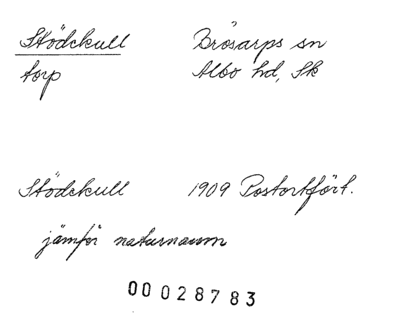 Stödekull Brösarps sn
torp Albo hd, Sk
Stödekull 1909 Postortför t.
jämför naturnamn
00028783